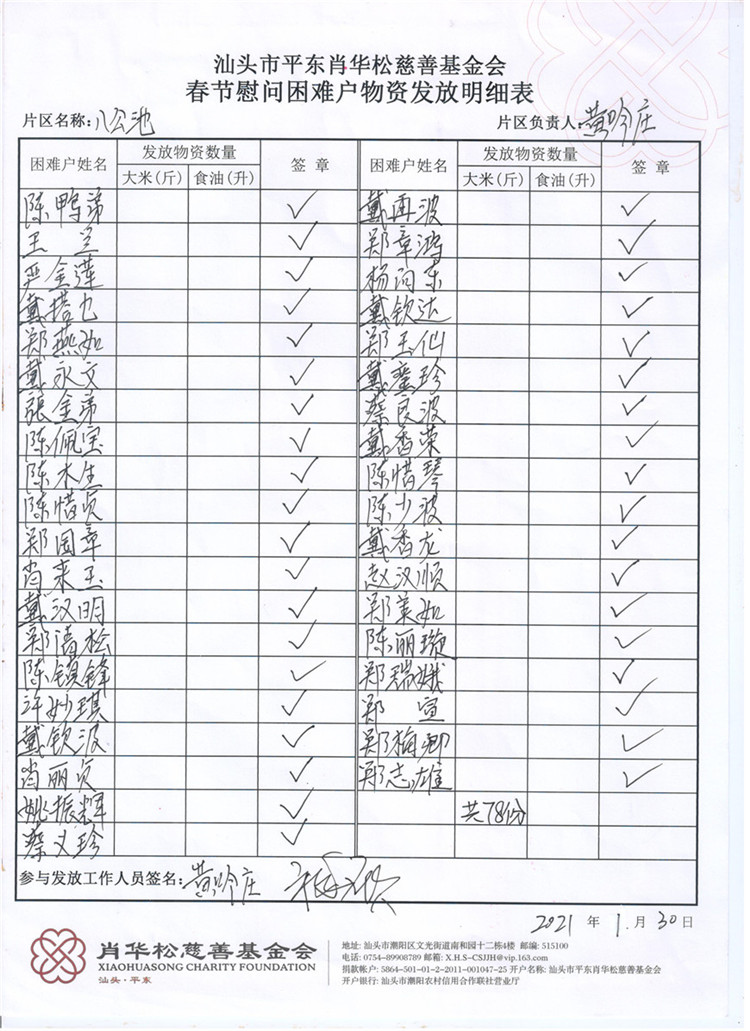 汕头市平东肖华松慈善基金会
春节慰问困难户物资发放明细表
片区名称:八公池 片区负责人:黄吟庄
困难户姓名 发放物资数量 签章 困难户姓名 发放物资数量 签章
大米(斤) 食油(升) 大米(斤) 食油(升)
陈鸭弟 ✓ 戴再波 ✓
王兰 ✓ 郑章鸿 ✓
严金莲 ✓ 杨向东 ✓
戴搭七 ✓ 戴钦达 ✓
郑燕如 ✓ 郑玉仙 ✓
戴永文 ✓ 戴銮珍 ✓
张金弟 ✓ 蔡良波 ✓
陈佩宝 ✓ 戴香荣 ✓
陈木生 ✓ 陈惜琴 ✓
陈惜贞 ✓ 陈少波 ✓
郑国章 ✓ 戴香龙 ✓
肖来玉 ✓ 赵汉顺 ✓
戴汉明 ✓ 郑美如 ✓
郑清松 ✓ 陈丽璇 ✓
陈锁锋 ✓ 郑瑞娥 ✓
许妙琪 ✓ 郑宣 ✓
戴钦波 ✓ 郑梅卿 ✓
肖丽贞 ✓ 郑志雄 ✓
姚振辉 ✓ 共78份
蔡义珍 ✓
参与发放工作人员签名:黄吟庄
2021年1月30日
肖华松慈善基金会
XIAOHUASONG CHARITY FOUNDATION
汕头·平东
地址: 汕头市潮阳区文光街道南和园十二栋4楼 邮编: 515100
电话: 0754-89908789 邮箱: X.H.S-CSJJH@vip.163.com
捐款帐户: 5864-501-01-2-2011-001047-25 开户名称: 汕头市平东肖华松慈善基金会
开户银行: 汕头市潮阳农村信用合作联社营业厅